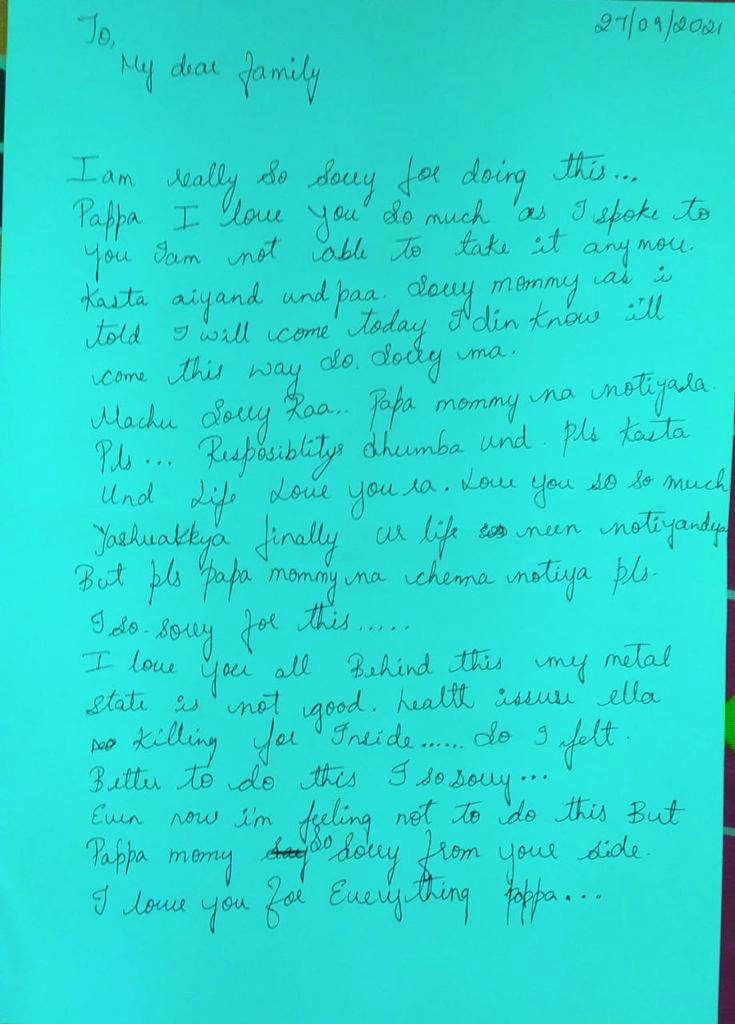 27/09/2021
To,
My dear family
I am really so sorry for doing this...
Pappa I love you so much as I spoke to
you Iam not able to take it anymore.
Kasta aiyand und paa. Sorry mommy as i
told I will come today I din know ill
come this way so. Sorry ma.
Machu Sorry Raa.. Papa mommy na notiyala.
Pls... Resposiblitys dhumba und. Pls Kasta
Und life Love you ra. Love you so so much
Yashuakkya finally ur life neen notiyandya
But pls papa mommy na chenna notiya pls.
I so. sorry for this.....
I love you all Behind this my metal
state is not good. health issuse ella
killing for Inside...... So I felt.
Better to do this I so sorry...
Even now i'm feeling not to do this But
Pappa momy So Sorry from your side.
I love you for Everything pappa...